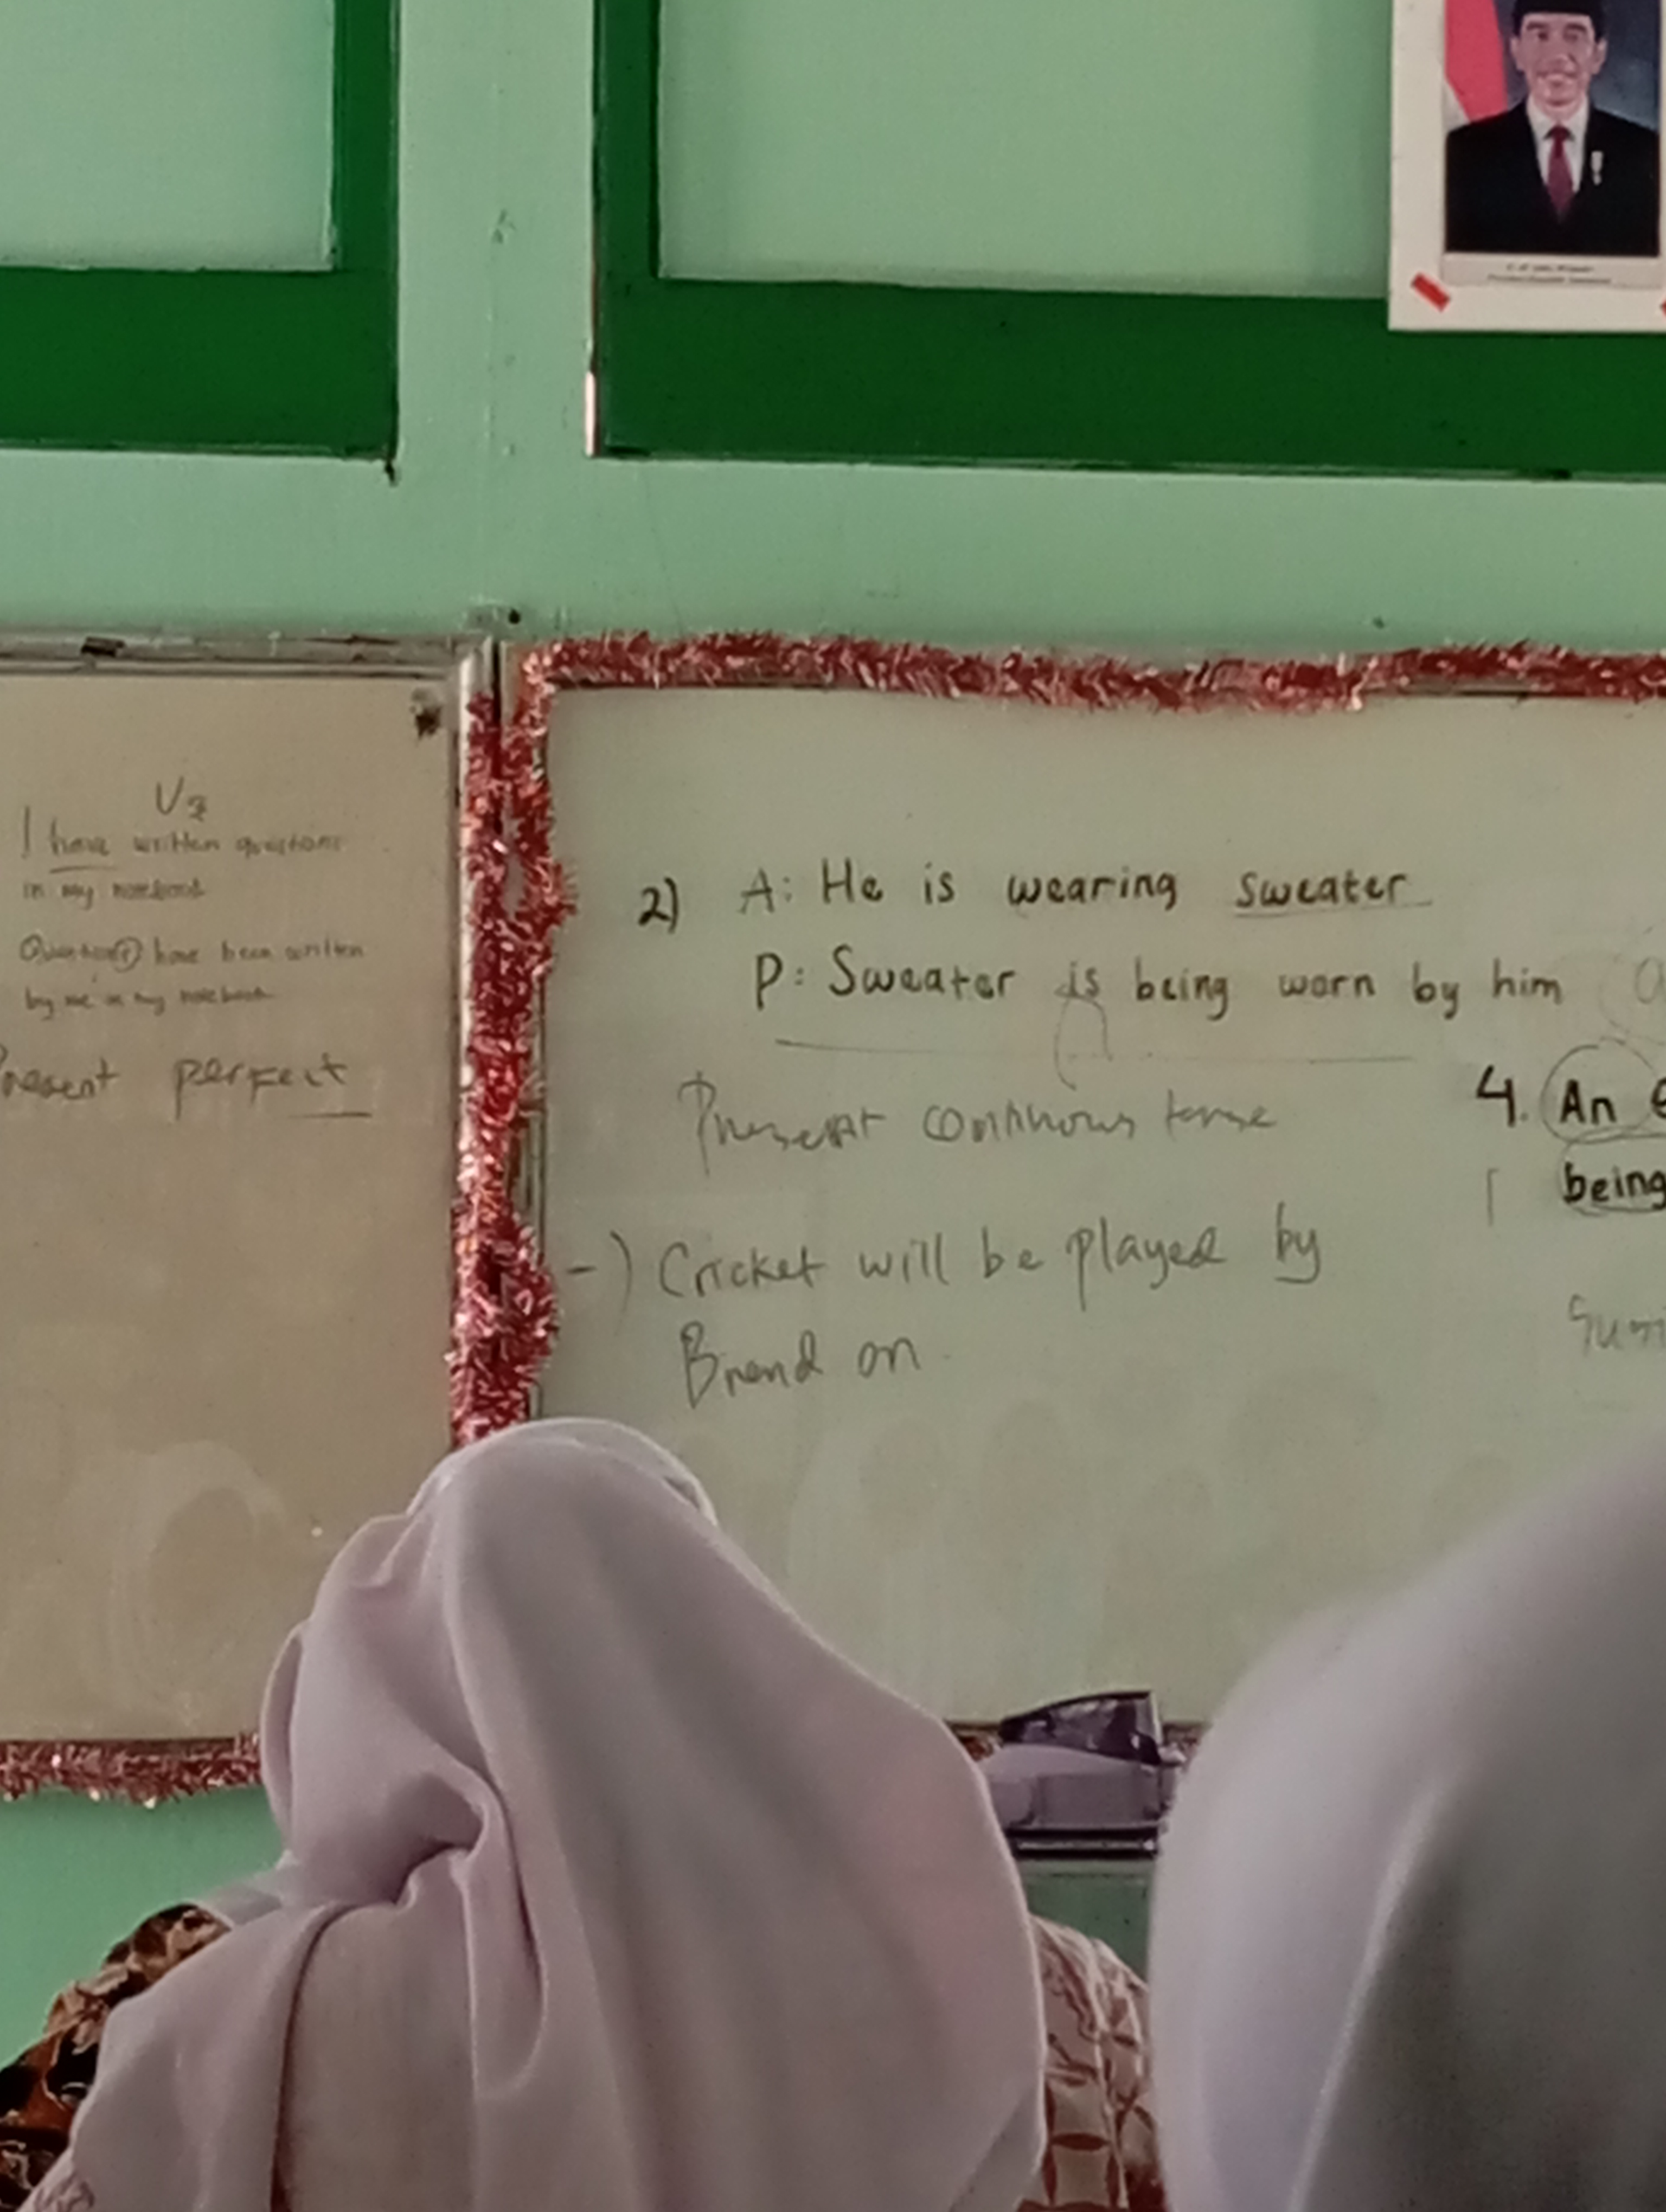 V3
I have written questions
in my notebook
Question(s) have been written
by me in my notebook
Present perfect
2) A: He is wearing sweater
P: Sweater is being worn by him
Present continuous tense
-) Cricket will be played by
Brend on
4. An
being